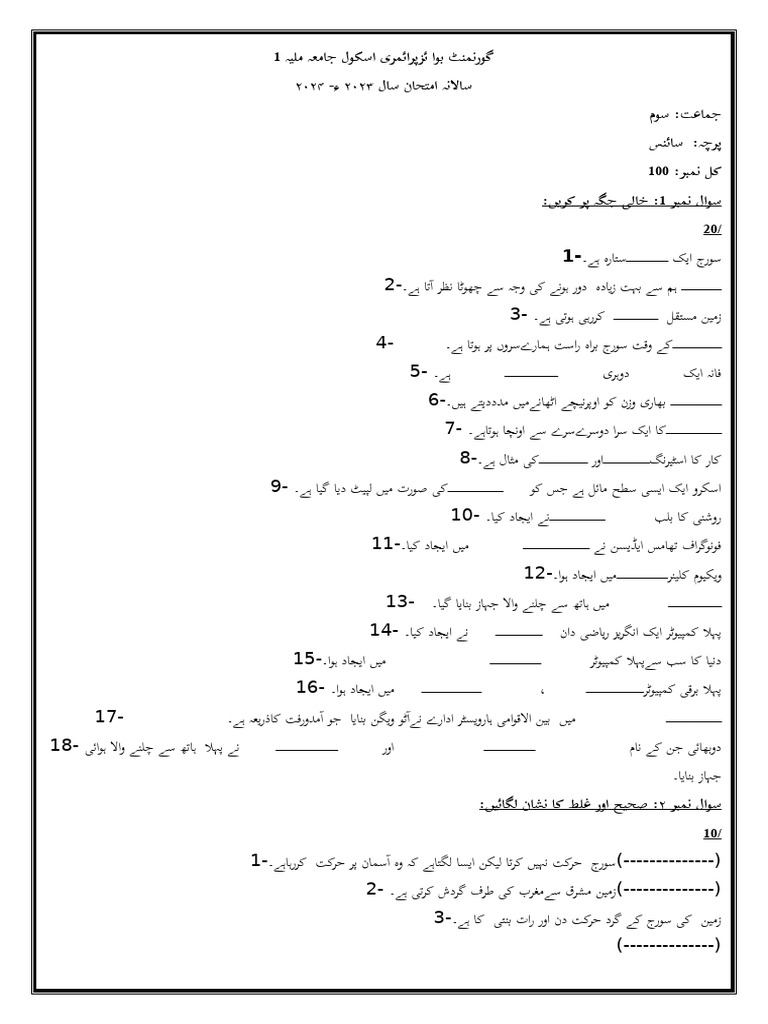 گورنمنٹ بوا ئزپرائمری اسکول جامعہ ملیہ 1
سالانہ امتحان سال ۲۰۲۳ ء- ۲۰۲۴
جماعت: سوم
پرچہ: سائنس
کل نمبر: 100
سوال نمبر 1: خالی جگہ پر کریں:
/20
سورج ایک ________ستارہ ہے۔-1
________ ہم سے بہت زیادہ دور ہونے کی وجہ سے چھوٹا نظر آتا ہے۔-2
زمین مستقل ________ کررہی ہوتی ہے۔ -3
________کے وقت سورج براہ راست ہمارےسروں پر ہوتا ہے۔ -4
فانہ ایک دوہری ________ ہے۔ -5
________ بھاری وزن کو اوپرنیچے اٹھانےمیں مدددیتے ہیں۔-6
________کا ایک سرا دوسرےسرے سے اونچا ہوتاہے۔ -7
کار کا اسٹیرنگ________اور ________کی مثال ہے۔-8
اسکرو ایک ایسی سطح مائل ہے جس کو ________کی صورت میں لپیٹ دیا گیا ہے۔ -9
روشنی کا بلب ________نے ایجاد کیا۔ -10
فونوگراف تھامس ایڈیسن نے ________ میں ایجاد کیا۔-11
ویکیوم کلینر________میں ایجاد ہوا۔-12
________ میں ہاتھ سے چلنے والا جہاز بنایا گیا۔ -13
پہلا کمپیوٹر ایک انگریز ریاضی دان ________ نے ایجاد کیا۔ -14
دنیا کا سب سےپہلا کمپیوٹر ________ میں ایجاد ہوا۔-15
پہلا برقی کمپیوٹر________ ، ________ میں ایجاد ہوا۔ -16
________ میں بین الاقوامی ہارویسٹر ادارے نےآٹو ویگن بنایا جو آمدورفت کاذریعہ ہے۔ -17
دوبھائی جن کے نام ________ اور ________ نے پہلا ہاتھ سے چلنے والا ہوائی -18
جہاز بنایا۔
سوال نمبر ۲: صحیح اور غلط کا نشان لگائیں:
/10
(--------------)سورج حرکت نہیں کرتا لیکن ایسا لگتاہے کہ وہ آسمان پر حرکت کررہاہے۔-1
(--------------)زمین مشرق سےمغرب کی طرف گردش کرتی ہے۔ -2
زمین کی سورج کے گرد حرکت دن اور رات بنتی کا ہے۔-3
(--------------)